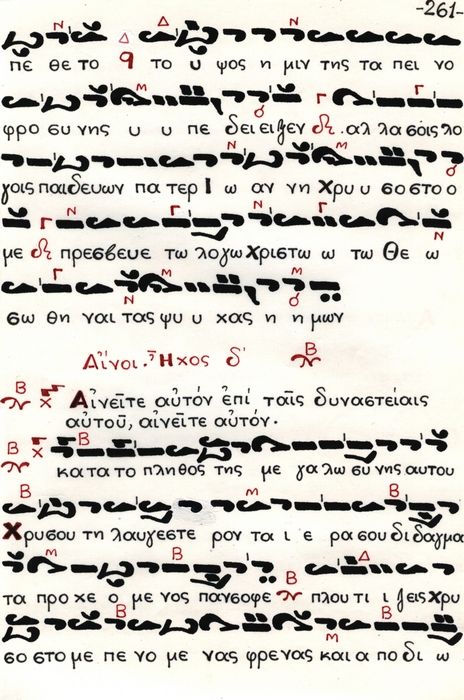 -261-
πε θε το το υ ψος η μιν της τα πει νο
φρο συ νης υ υ πε δει ει ξεν αλ λα σοις λο
γοις παιδευων πα τερ Ι ω αν νη Χρυ υ σο στο ο
με πρεσβευε τω λογω Χριστω ω τω Θε ω
σω θη ναι τας ψυ υ χας η η μων
Αἶνοι. Ἦχος δ'
Αἰνεῖτε αὐτόν ἐπί ταῖς δυναστείαις
αὐτοῦ, αἰνεῖτε αὐτόν.
κατα το πληθος της με γα λω συ νης αυτου
Χρυσου τη λαυγεστε ρον τα ι ε ρα σου διδαγμα
τα προ χε ο με νος πανσοφε πλου τι ι ζεις χρυ
σο στο με πε νο με νας φρενας και α πο δι ω